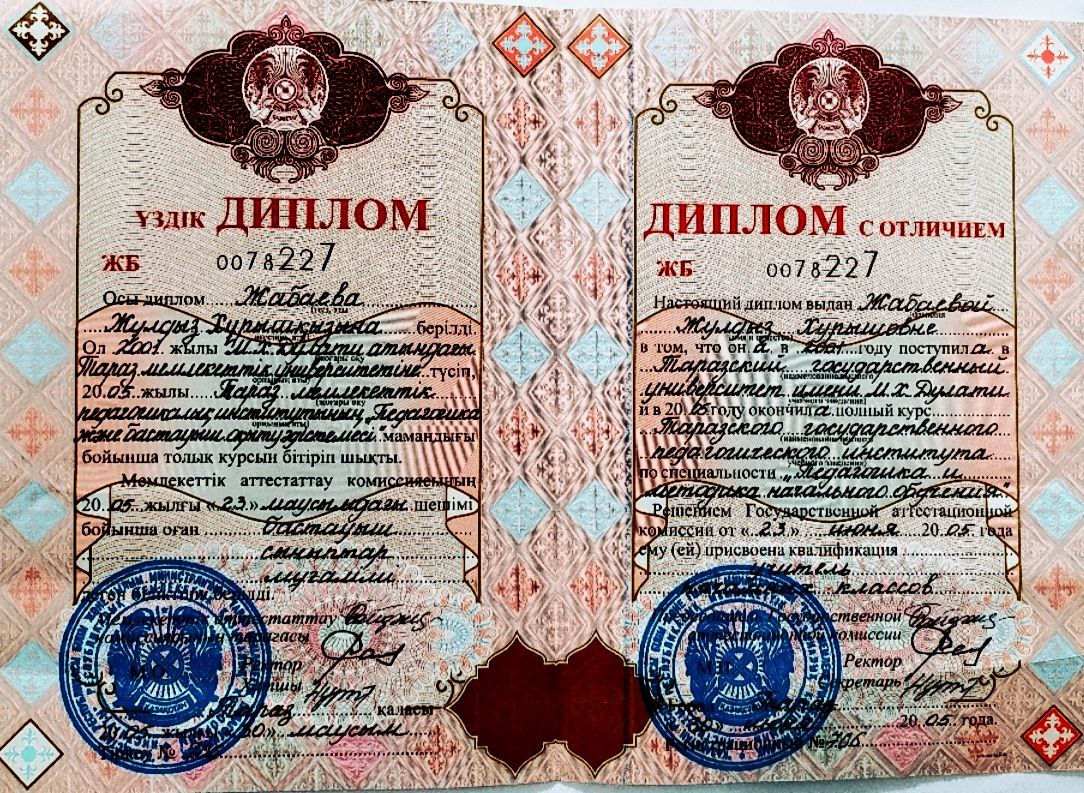 ҮЗДІК ДИПЛОМ
ЖБ 0078227
Осы диплом Жабаева
Жулдыз Хурышқызына берілді.
Ол 2001 жылы М.Х.Дулати атындағы
Тараз мемлекеттік университетіне түсіп,
2005 жылы Тараз мемлекеттік
педагогикалық институтының „Педагогика
және бастауыш оқыту әдістемесі" мамандығы
бойынша толық курсын бітіріп шықты.
Мемлекеттік аттестаттау комиссиясының
2005 жылғы «23» маусымдағы шешімі
бойынша оған бастауыш
сыныптар
мұғалімі
деген біліктілік берілді.
Мемлекеттік аттестаттау
комиссиясының төрағасы
Ректор
Хатшы
Тараз қаласы
2005 жылғы «30» маусым
Тіркеу №
ДИПЛОМ С ОТЛИЧИЕМ
ЖБ 0078227
Настоящий диплом выдан Жабаевой
Жулдыз Хурышовне
в том, что он а в 2001 году поступил а в
Таразский государственный
университет имени М.Х.Дулати
и в 2005 году окончил а полный курс
Таразского государственного
педагогического института
по специальности „Педагогика и
методика начального обучения"
Решением Государственной аттестационной
комиссии от «23» июня 2005 года
ему (ей) присвоена квалификация
учитель
начальных классов
Председатель Государственной
аттестационной комиссии
Ректор
Секретарь
М.П.
Город Тараз
2005 года.
Регистрационный №